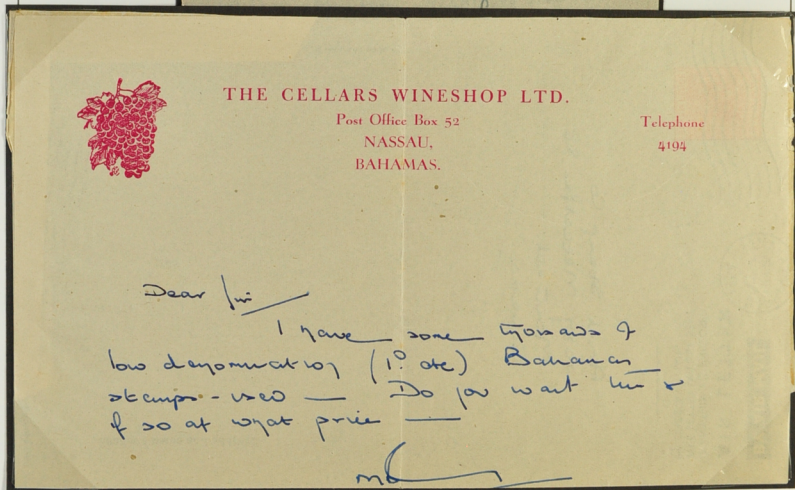 THE CELLARS WINESHOP LTD.
Post Office Box 52
NASSAU,
BAHAMAS.
Telephone
4194
Dear Sir
I have some thousands of
low denomination (1d etc) Bahamas
stamps - used — Do you want them &
if so at what price —